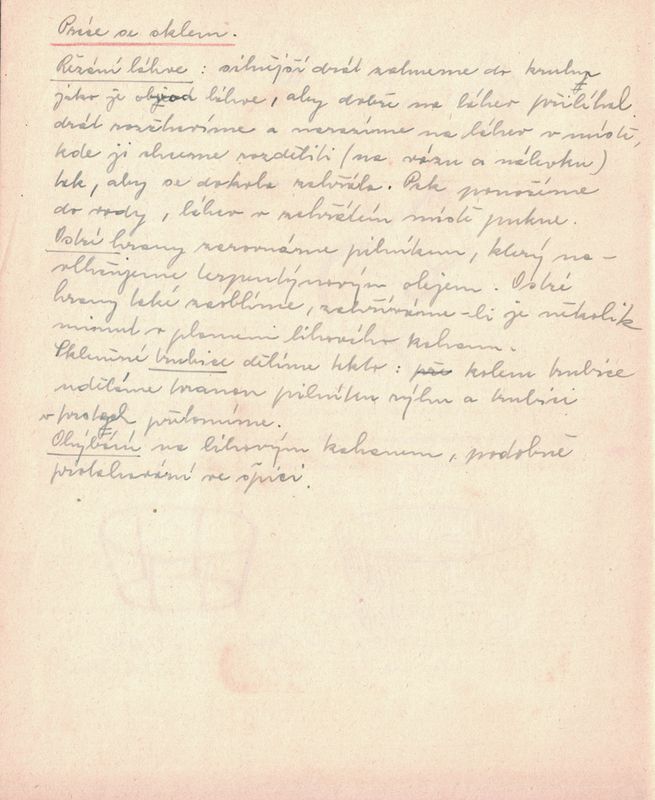 Práce se sklem.
Řezání láhve : silnější drát zahneme do kruhu,
jako je obvod láhve, aby dobře na láhev přiléhal.
drát rozžhavíme a narazíme na láhev v místě,
kde ji chceme rozděliti (na vázu a nálevku)
tak, aby se dokola zahřála. Pak ponoříme
do vody, láhev v zahřátém místě pukne.
Ostré hrany zarovnáme pilníkem, který na-
vlhčujeme terpentýnovým olejem. Ostré
hrany také zaoblíme, zahříváme-li je několik
minut v plameni lihového kahanu.
Skleněné trubice dělíme takto : kolem trubice
uděláme hranou pilníku rýhu a trubici
v prstech přelomíme.
Ohýbání na lihovým kahanem, podobně
protahování ve špici.